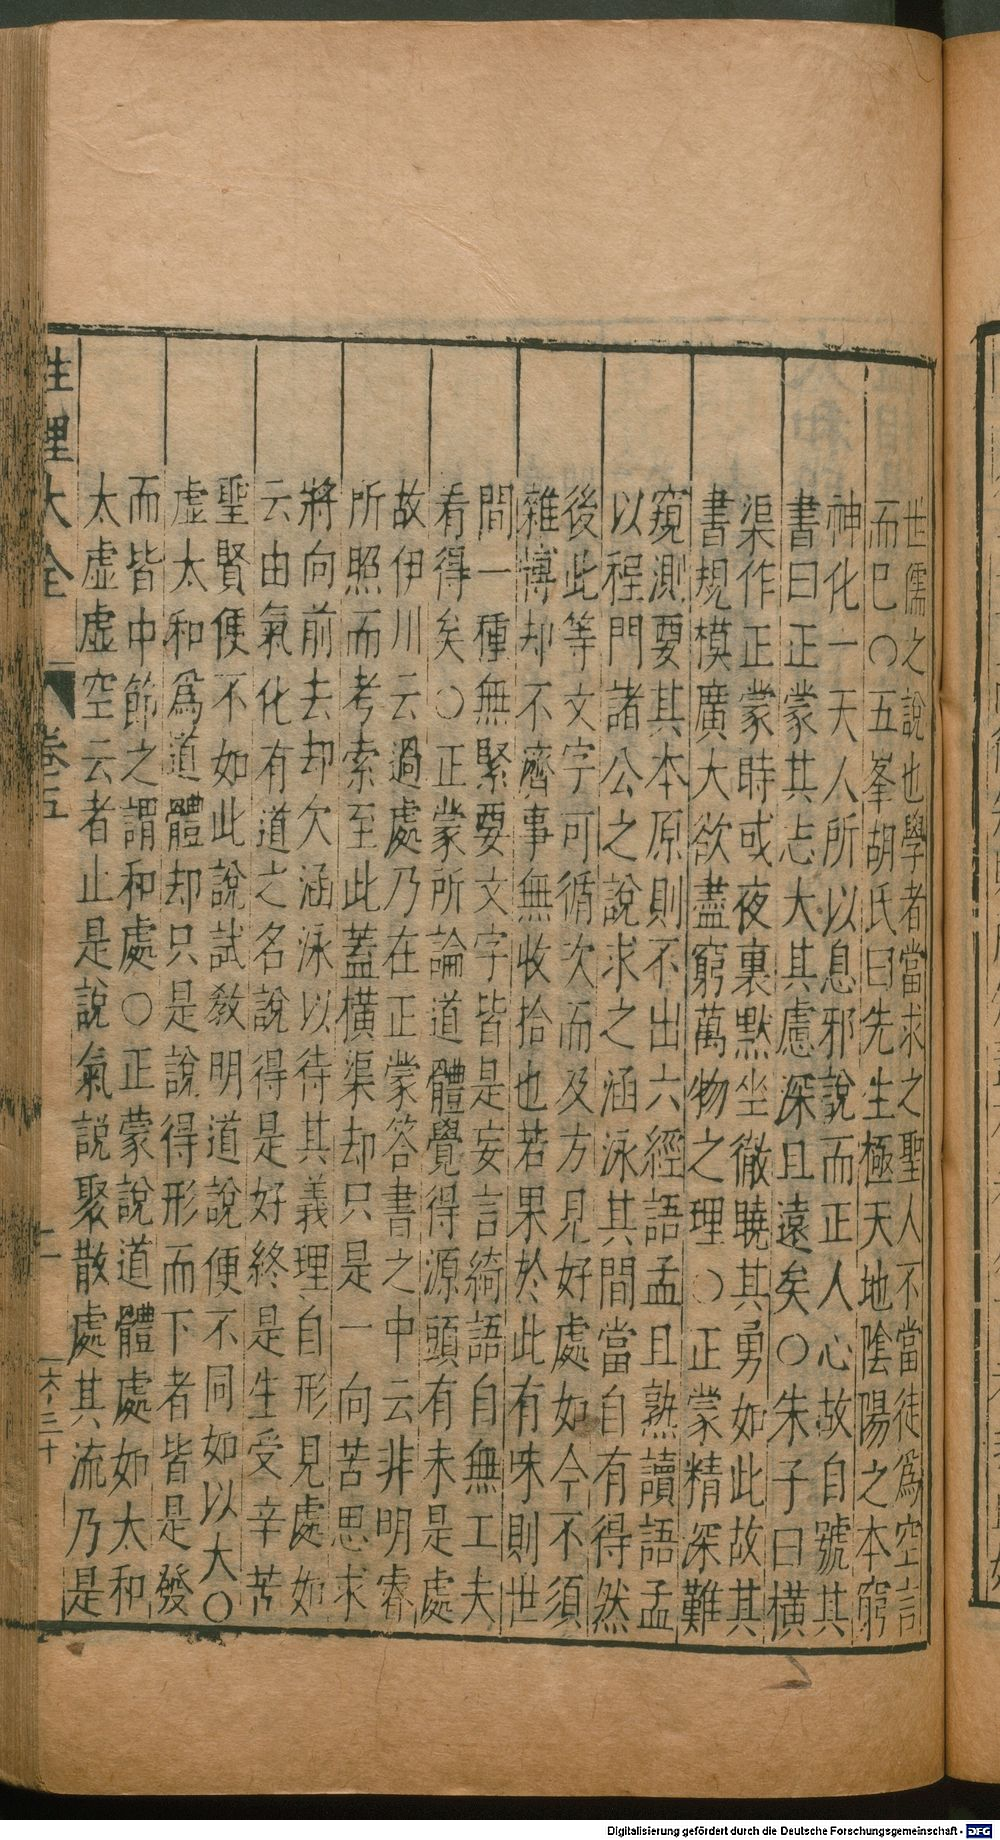 世儒之說也學者當求之聖人不當徒爲空言
而已○五峯胡氏曰先生極天地陰陽之本窮
神化一天人所以息邪說而正人心故自號其
書曰正蒙其志大其慮深且遠矣○朱子曰橫
渠作正蒙時或夜裏默坐徹曉其勇如此故其
書規模廣大欲盡窮萬物之理○正蒙精深難
窺測要其本原則不出六經語孟且熟讀語孟
以程門諸公之說求之涵泳其間當自有得然
後此等文字可循次而及方見好處如今不須
雜博却不濟事無收拾也若果於此有味則世
間一種無緊要文字皆是妄言綺語自無工夫
看得矣○正蒙所論道體覺得源頭有未是處
故伊川云過處乃在正蒙答書之中云非明睿
所照而考索至此蓋橫渠却只是一向苦思求
將向前去却欠涵泳以待其義理自形見處如
云由氣化有道之名說得是好終是生受辛苦
聖賢便不如此說試敎明道說便不同如以大〇
虛太和爲道體却只是說得形而下者皆是發
而皆中節之謂和處○正蒙說道體處如太和
太虛虛空云者止是說氣説聚散處其流乃是
性理大全 卷五 二 六三十
Digitalisierung gefördert durch die Deutsche Forschungsgemeinschaft - DFG